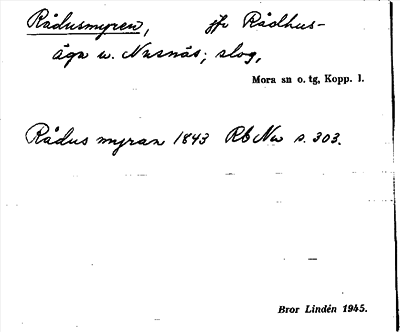 Rådusmyren, jfr Rådhus-
äga w. Nusnäs; slog,
Mora sn o. tg, Kopp. l.
Rådus myran 1843 Rb Nw s. 303.
Bror Lindén 1945.